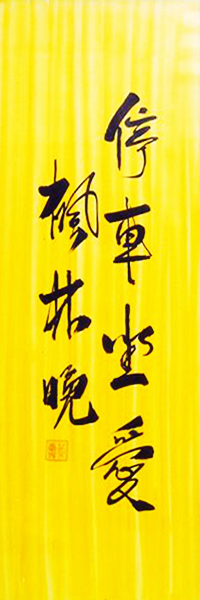 停車坐愛
楓林晚